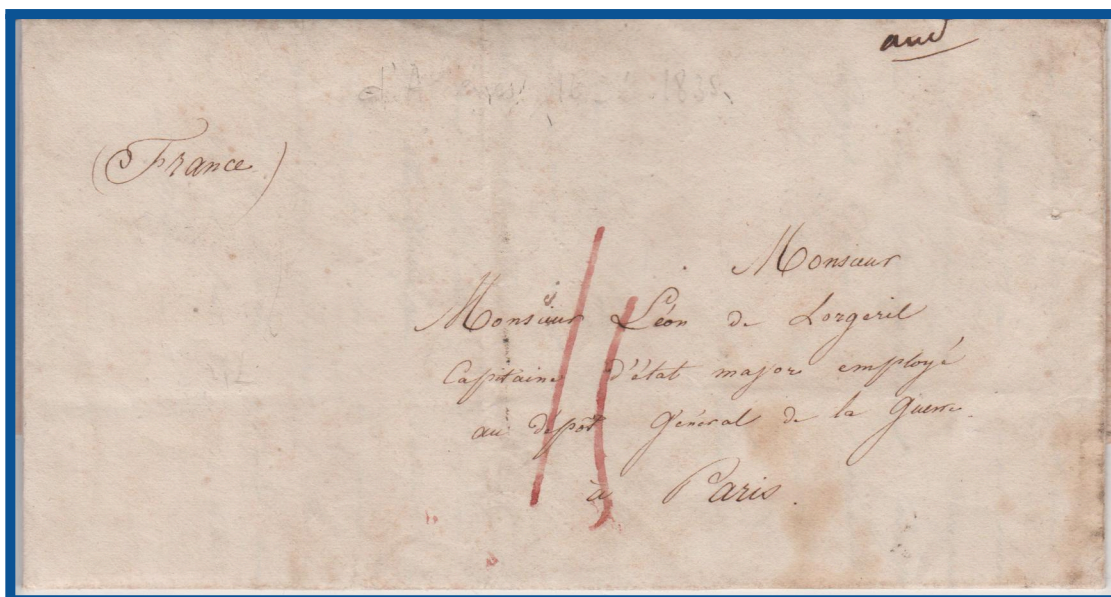 aud
(France)
Monsieur
Monsieur Léon de Lorgeril
Capitaine d'état major employé
au dépôt Général de la Guerre.
à Paris.